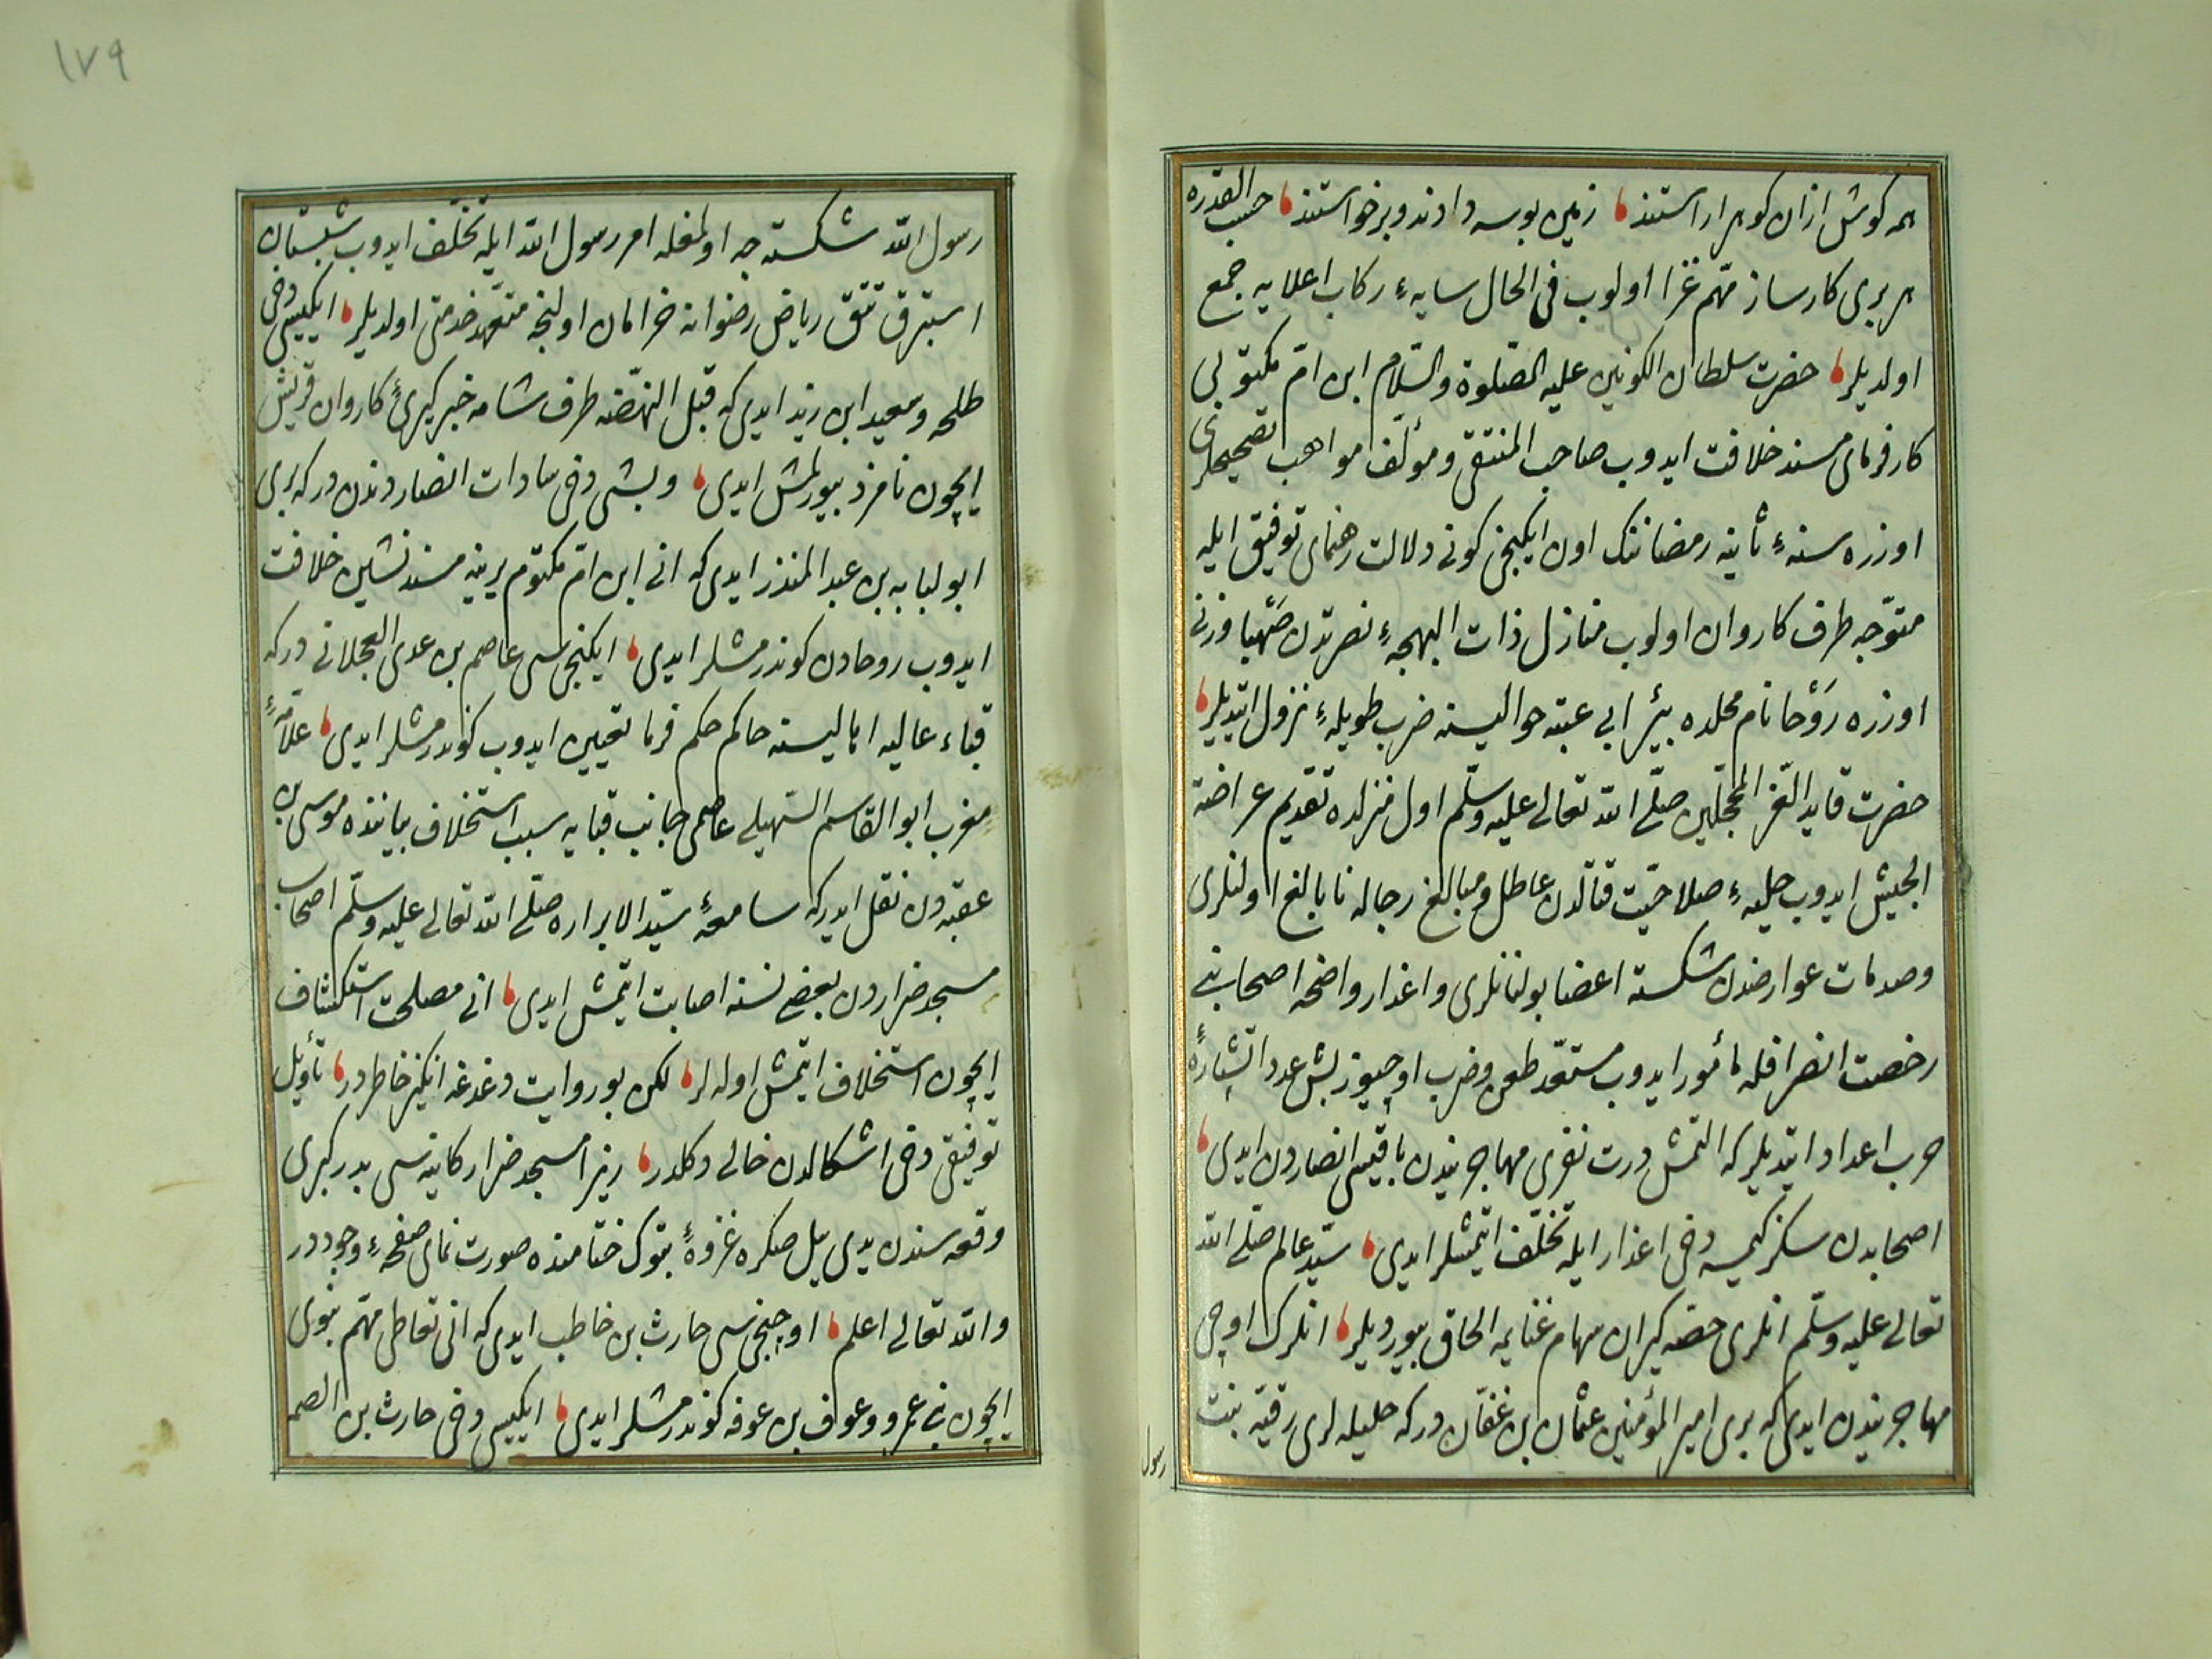 همه كوش ازان كوهر اراستند زمين بوسه دادند وبرخواستند حسب القدره
هر بری كارساز مهّم غزا اولوب فی الحال سايهٔ ركاب اعلايه جمع
اولديلر حضرت سلطان الكونين عليه الصّلوة والسّلام ابن امّ مكتوبی
كارفرمای مسند خلافت ايدوب صاحب المنتقی ومؤلّف مواهب تصحيحلری
اوزره سنهٔ ثانيه رمضاننك اون ايكنجی كونی دلالت رهنمای توفيق ايله
متوّجه طرف كاروان اولوب منازل ذات البهجهٔ نصرتدن صَهْبا وزنی
اوزره رَوْحا نام محلده بئر ابی عتبه حواليسنه ضرب طويلهٔ نزول ايتديلر
حضرت قايد الغّر المحجّلين صلّی الله تعالی عليه وسلّم اول منزلده تقديم عراضة
الجيش ايدوب حليهٔ صلاحيّت قتالدن عاطل ومبالغ رجاله نابالغ اولنلری
وصدمات عوارضدن شكسته اعضا بولنانلری واعذار واضحه اصحابنی
رخصت انصرافله مأمور ايدوب مستعّد طعن وضرب اوچيوز بش عدد اتشپارهٔ
حرب اعداد ايتديلر كه التمش درت نفری مهاجريندن باقيسی انصاردن ايدی
اصحابدن سكز كيمسه دخی اعذار ايله تخلّف ايتمشلر ايدی سيّد عالم صلّی الله
تعالی عليه وسلّم انلری حصّه كيران سهام غنايمه الحاق بيورديلر انلرك اوچی
مهاجريندن ايدی كه بری امير المؤمنين عثمان بن عفّان دركه حليله لری رقيّه بنت
رسول
١٧٩
رسول الله شكسته جه اولمغله امر رسول الله ايله تخلّف ايدوب شبستان
استبرق تتق رياض رضوانه خرامان اولنجه متعهّد خدمتی اولديلر ايكيسی دخی
طلحه وسعيد ابن زيد ايدی كه قبل النهّضه طرف شامه خبركيریٔ كاروان قريش
ايچون نامزد بيورلمش ايدی وبشی دخی سادات انصاردندن دركه بری
ابو لبابه بن عبد المنذر ايدی كه انی ابن امّ مكتوم يرينه مسند نشين خلافت
ايدوب روحادن كوندرمشلر ايدی ايكنجی سی عاصم بن عدی العجلانی دركه
قباء عاليه اهاليسنه حاكم حكم فرما تعيين ايدوب كوندرمشلر ايدی علاّمهٔ
مغرب ابو القاسم السّهيلی عاصمی جانب قبايه سبب استخلاف بياننده موسی بن
عقبه دن نقل ايدركه سامعهٔ سيّد الابراره صلّی الله تعالی عليه وسلّم اصحاب
مسجد ضراردن بعضی نسنه اصابت ايتمش ايدی انی مصلحت استكشاف
ايچون استخلاف ايتمش اوله لر لكن بو روايت دغدغه انكيز خاطر در تأويل
توفيقی دخی اشكالدن خالی دكلدر زيرا مسجد ضرار كاينه سی بدر كبری
وقعه سندن يدی ييل صكره غزوهٔ تبوك ختامنده صورت نمای صفحهٔ وجوددر
والله تعالی اعلم اوچنجی سی حارث بن خاطب ايدی كه انی تعاطی مهّم نبوی
ايچون بنی عمرو وعوف بن عوفه كوندرمشلر ايدی ايكيسی دخی حارث بن الصمه